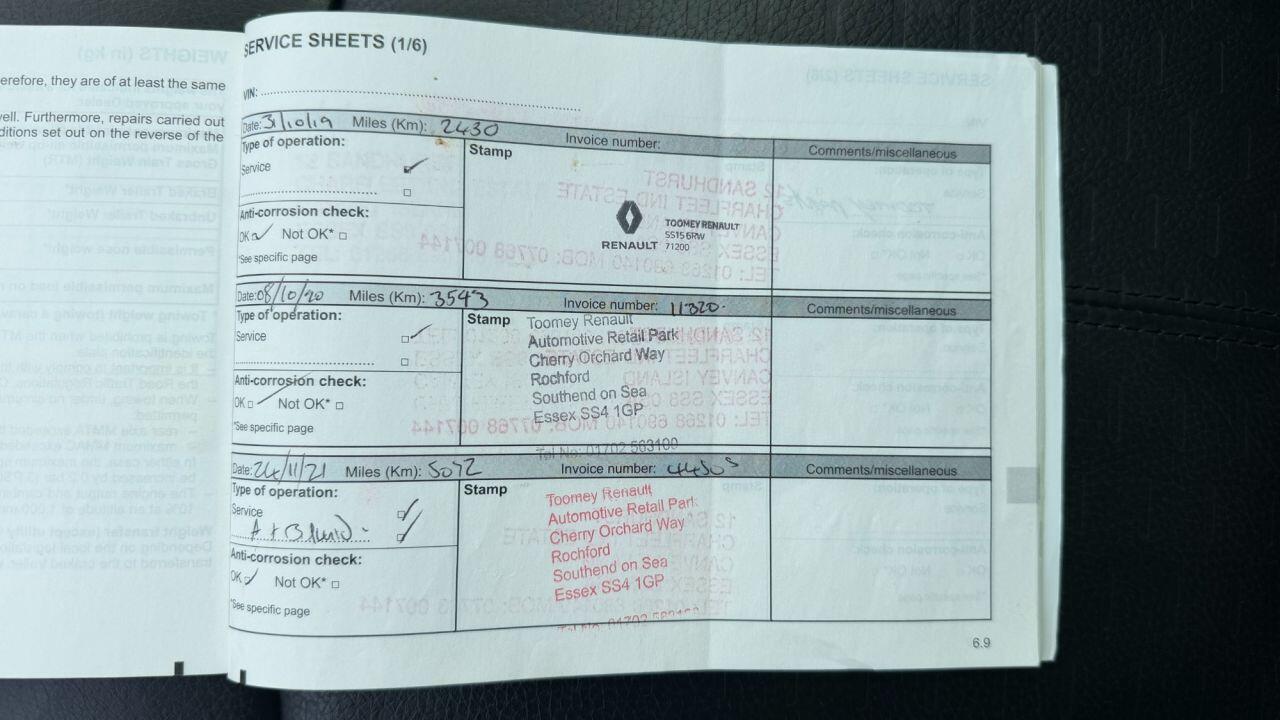 erefore, they are of at least the same
vell. Furthermore, repairs carried out
ditions set out on the reverse of the
SERVICE SHEETS (1/6)
VIN:
Date: 31/10/19 Miles (Km): 2430 Invoice number: Comments/miscellaneous
Type of operation:
Service
Anti-corrosion check:
OK Not OK*
*See specific page
Stamp
RENAULT
TOOMEY RENAULT
SS15 6RW
71200
Date: 08/10/20 Miles (Km): 3543 Invoice number: 11320. Comments/miscellaneous
Type of operation:
Service
Anti-corrosion check:
OK Not OK*
*See specific page
Stamp
Toomey Renault
Automotive Retail Park
Cherry Orchard Way
Rochford
Southend on Sea
Essex SS4 1GP
Tel No: 01702 563100
Date: 24/11/21 Miles (Km): 5072 Invoice number: Comments/miscellaneous
Type of operation:
Service
A + B fluid
Anti-corrosion check:
OK Not OK*
*See specific page
Stamp
Toomey Renault
Automotive Retail Park
Cherry Orchard Way
Rochford
Southend on Sea
Essex SS4 1GP
6.9